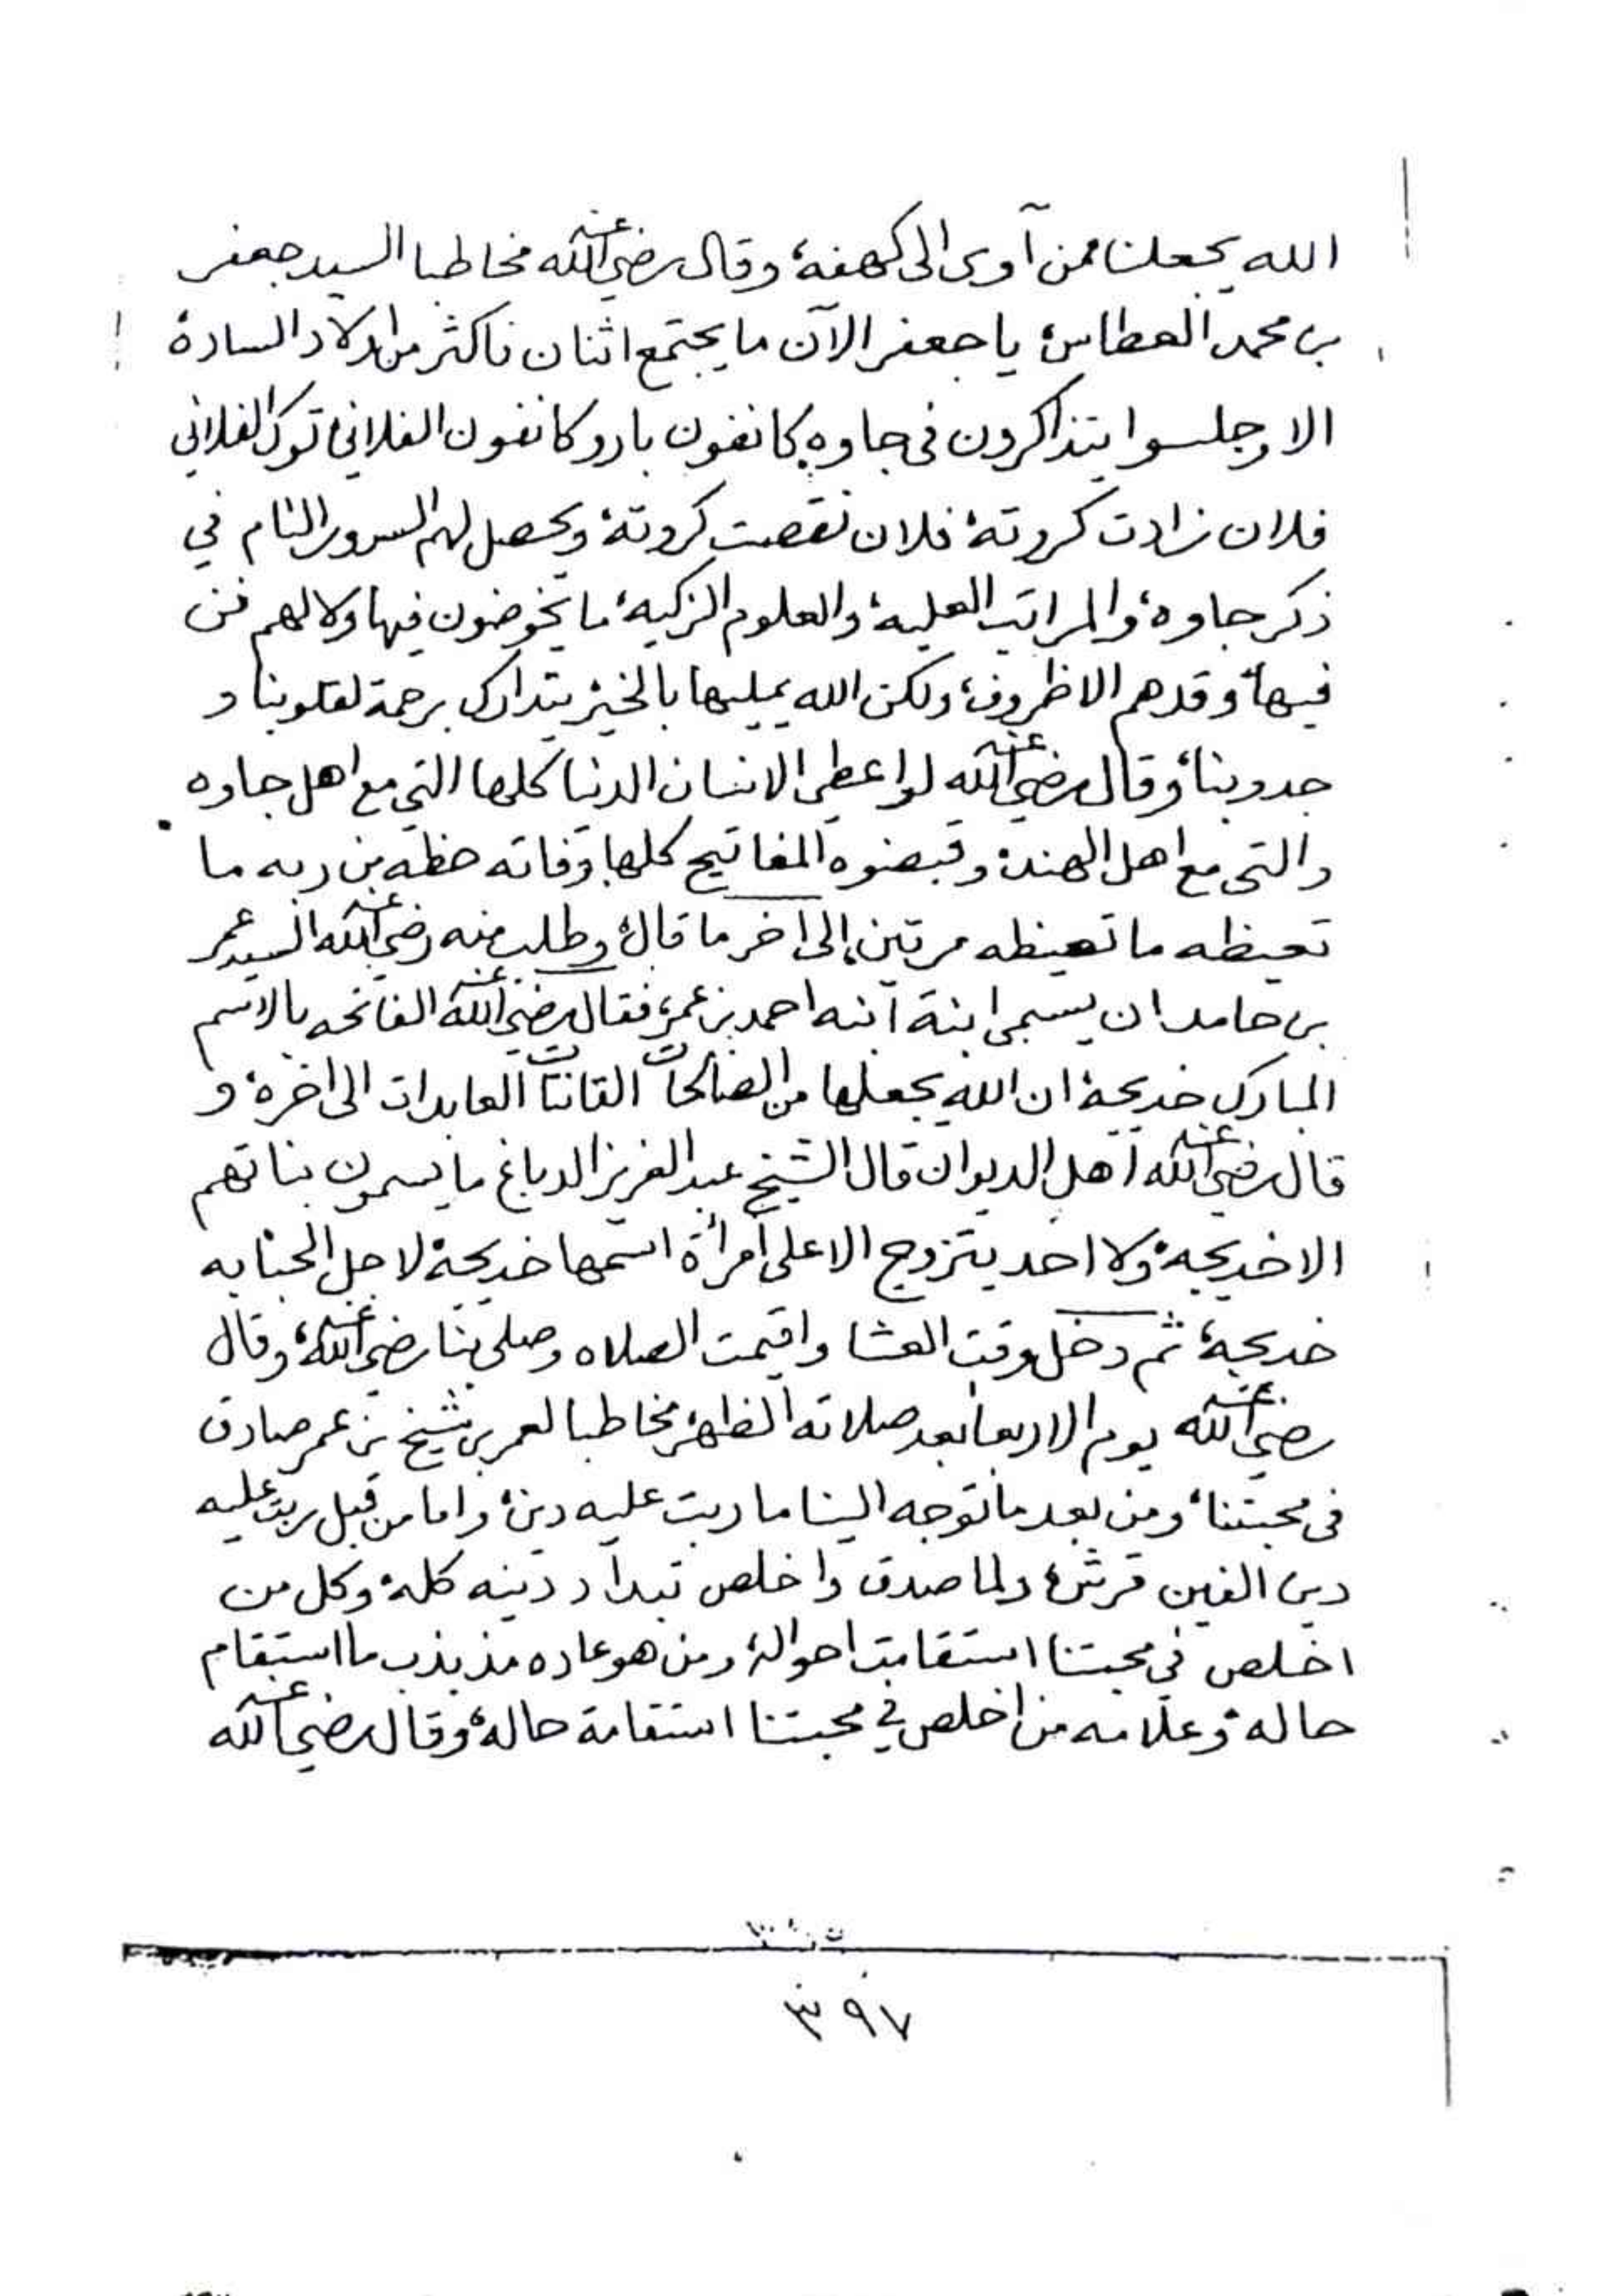 الله يجعلنا ممن آوى الى كهفه، وقال رضي الله عنه مخاطبا السيد جعفر
بن محمد العطاس، يا جعفر الآن ما يجتمع اثنان فاكثر من اولاد السادة
الا وجلسوا يتذاكرون في جاوه كانفون بارو كانفون الفلاني توك الفلاني
فلان زادت كروته، فلان نقصت كروته، ويحصل لهم السرور التام في
ذكر جاوه، والمراتب العليه، والعلوم الزكيه، ما يخوضون فيها ولا لهم فن
فيها، وقدهم الا ظروف، ولكن الله يمليها بالخير، يتدارك برحمة لقلوبنا و
جدوبنا، وقال رضي الله عنه لو اعطي الانسان الدنيا كلها التي مع اهل جاوه
والتي مع اهل الهند، وقبضوه المفاتيح كلها، وفاته حظه من ربه ما
تعيظه ما تعيظه مرتين، إلى اخر ما قال، وطلب منه رضي الله عنه السيد عمر
بن حامد ان يسمي ابنة ابنه احمد بن عمر، فقال رضي الله عنه الفاتحه بالاسم
المبارك خديجة، ان الله يجعلها من الصالحات القانتات العابدات الى اخره، و
قال رضي الله عنه اهل الديوان قال الشيخ عبد العزيز الدباغ ما يسمون بناتهم
الا خديجه، ولا احد يتزوج الا على امرأة اسمها خديجة، لاجل الحبابه
خديجه، ثم دخل وقت العشا واقيمت الصلاه وصلى بنا رضي الله عنه، وقال
رضي الله عنه يوم الاربعا بعد صلاته الظهر، مخاطبا لعمر بن شيخ بن عمر صادق
في محبتنا، ومن بعد ما توجه الينا ما ربت عليه دين، واما من قبل ربت عليه
دين الفين قرش، ولما صدق واخلص تبدا د دينه كله، وكل من
اخلص في محبتنا استقامت احواله، ومن هو عاده مذبذب ما استقام
حاله، وعلامه من اخلص في محبتنا استقامة حاله، وقال رضي الله عنه
٣٩٧